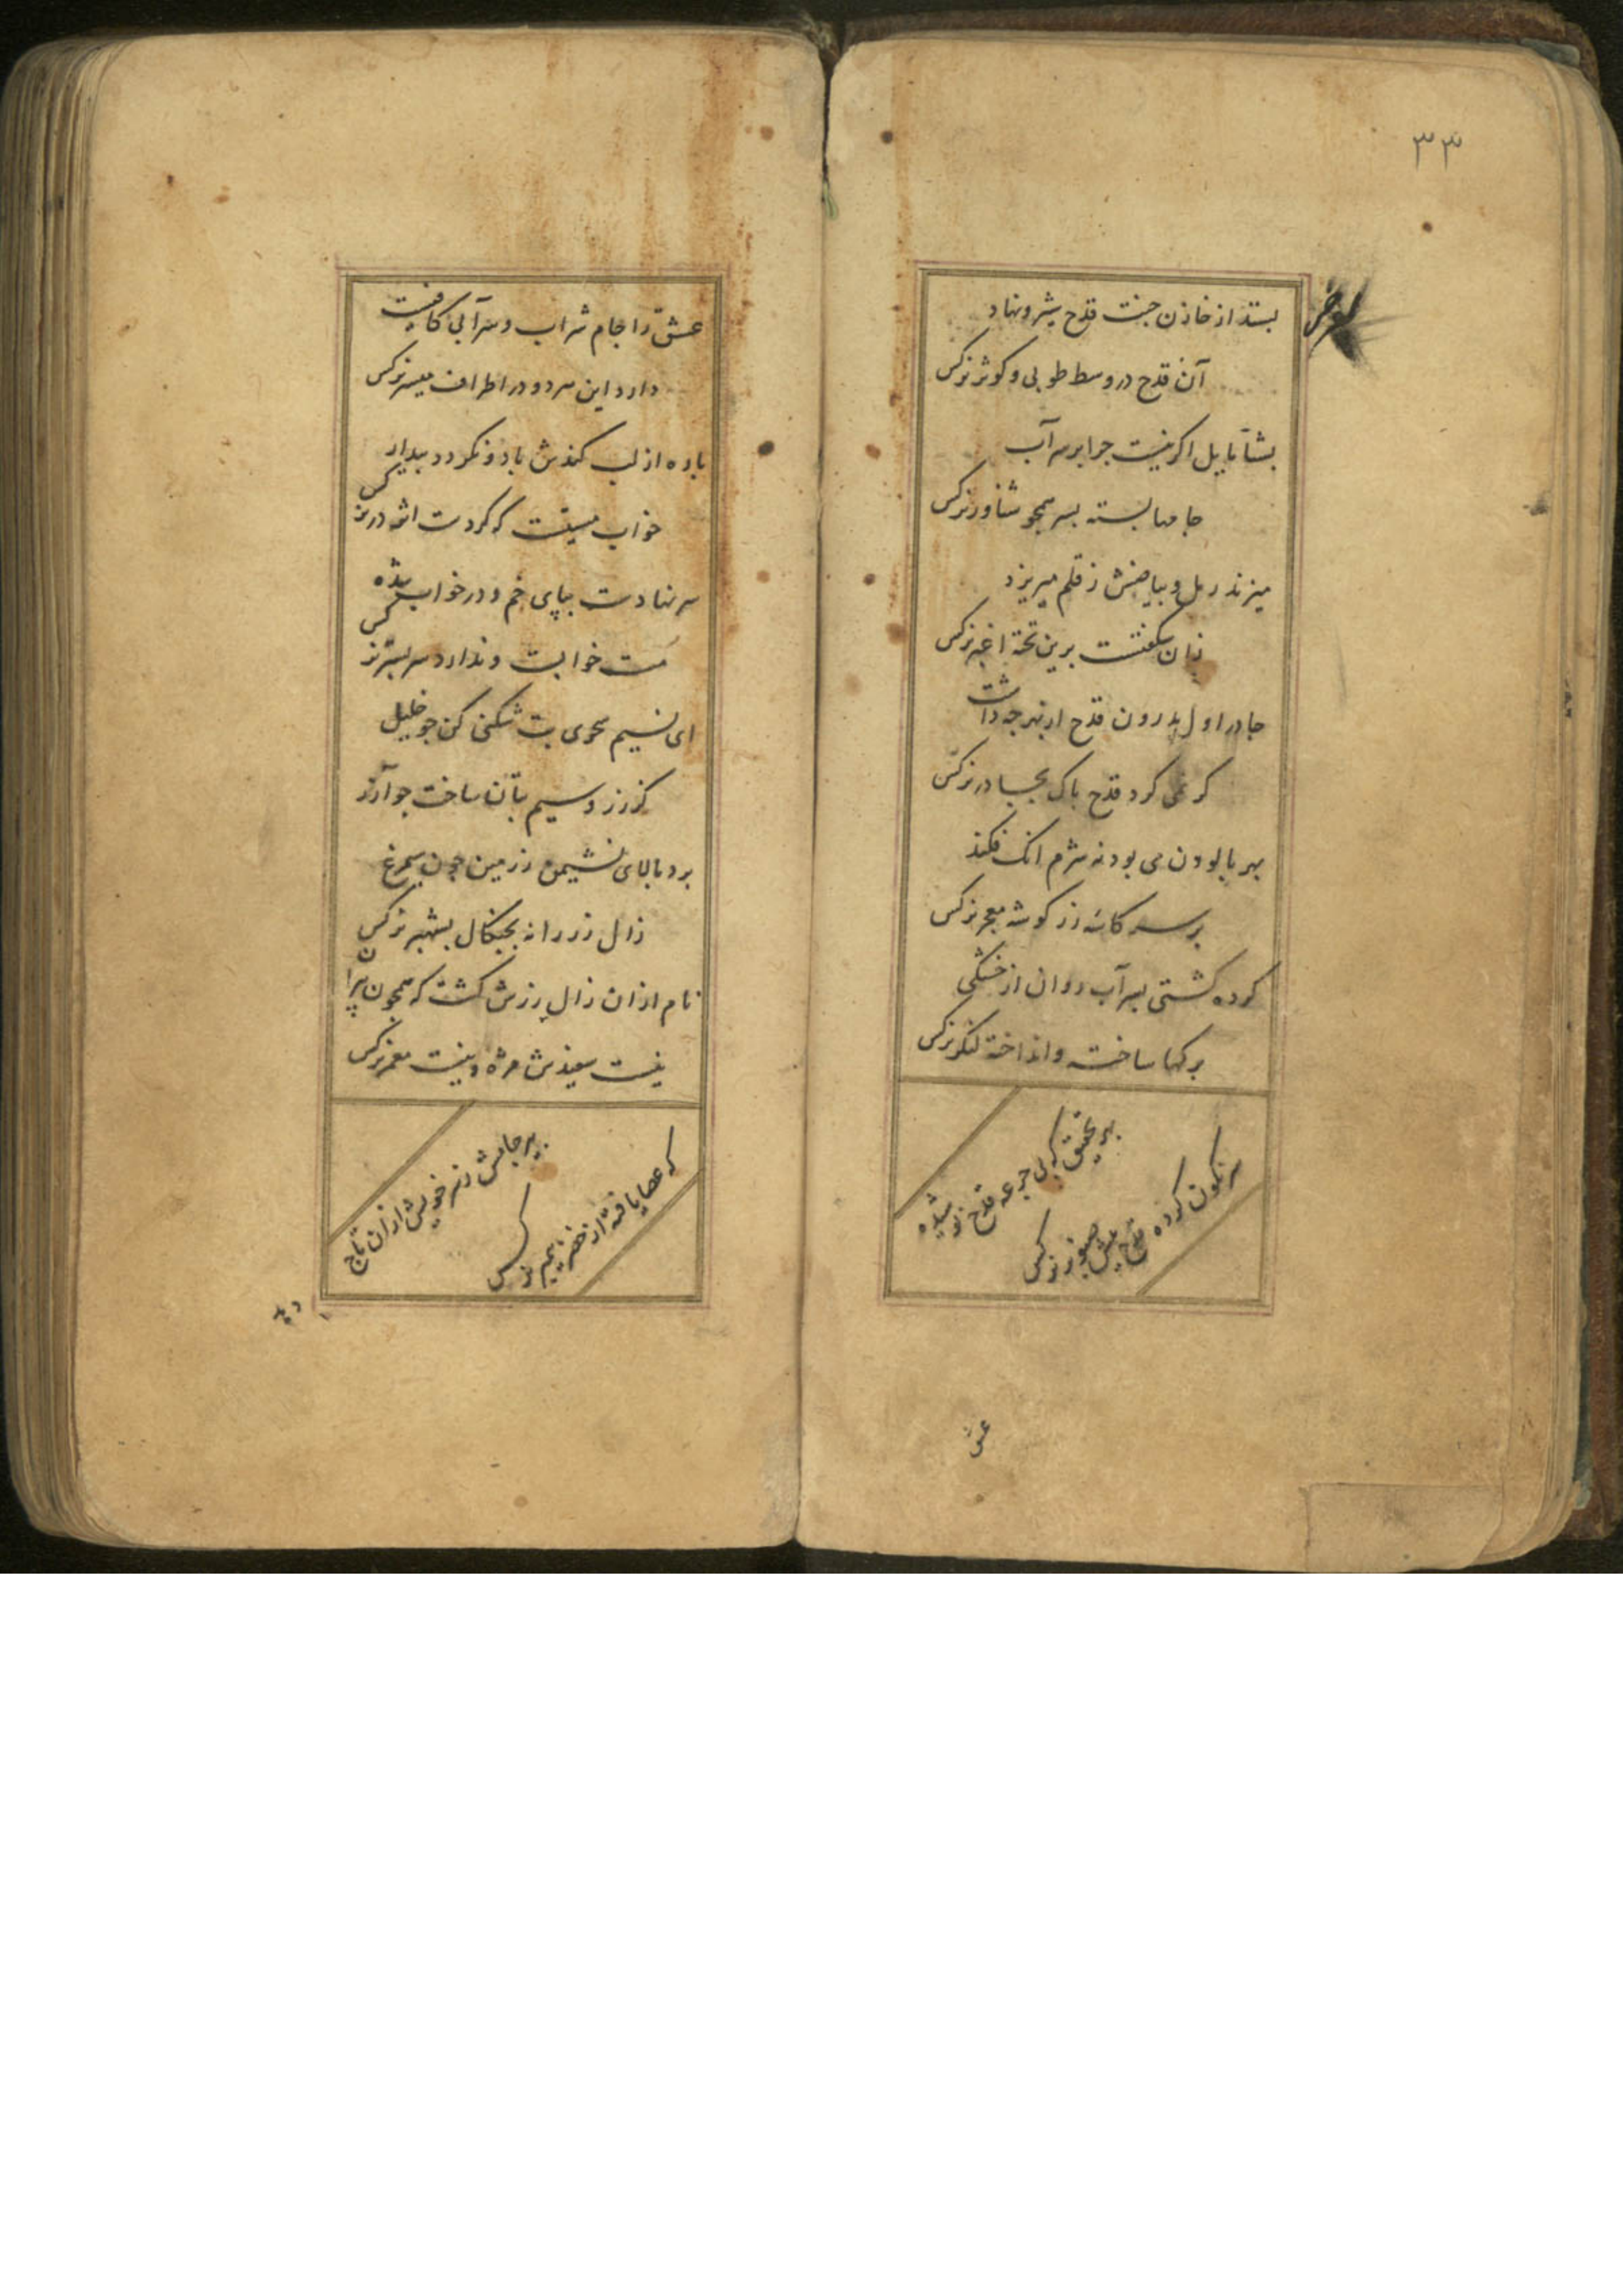 ۳۳
بستد از خازن جنت قدح شیر و نهاد
آن قدح در وسط طوبی و کوثر نرکس
بشنا مایل اکر نیست جرا بر سر آب
جامها بسته بسر همجو شناور نرکس
میزند رمل و بیاضش ز قلم میریزد
زان شکفتست برین تخته اغبر نرکس
جا در اول بدرون قدح ار نیر جه داشت
کر نمی کرد قدح باک بجادر نرکس
بهر بالودن می بود نه شرم انک فکند
بر سر کاسه زر کوشه معجر نرکس
کرده کشتی بسر آب روان از خشکی
برکها ساخته و انداخته لنکر نرکس
بهر تحقیق که بی جرعه قدح نوشیده
سرنکون کرده قدح پیش صنوبر نرکس
عش
عشق را جام شراب و سر آبی کافیست
دارد این هر دو در اطراف میسر نرکس
باده از لب کندش باد و نکردد بیدار
خواب مستیست که کردست اثر در نرکس
سر نهادست بپای خم و در خواب شده
مست خوابست و ندارد سر بستر نرکس
ای نسیم سحری بت شکنی کن جو خلیل
کز زر و سیم بتان ساخت جو آزر
برد بالای نشیمن ز زمین جون سیمرغ
زال زر را نه بجنکال بشهپر نرکس
نام ازان زال زرش کشت که همجون پیران
نیست سفیدش مژه و نیست معمر نرکس
بهر جامش ز سر خویش ازان تاج
که عصا یافته از خضر پیمبر نرکس